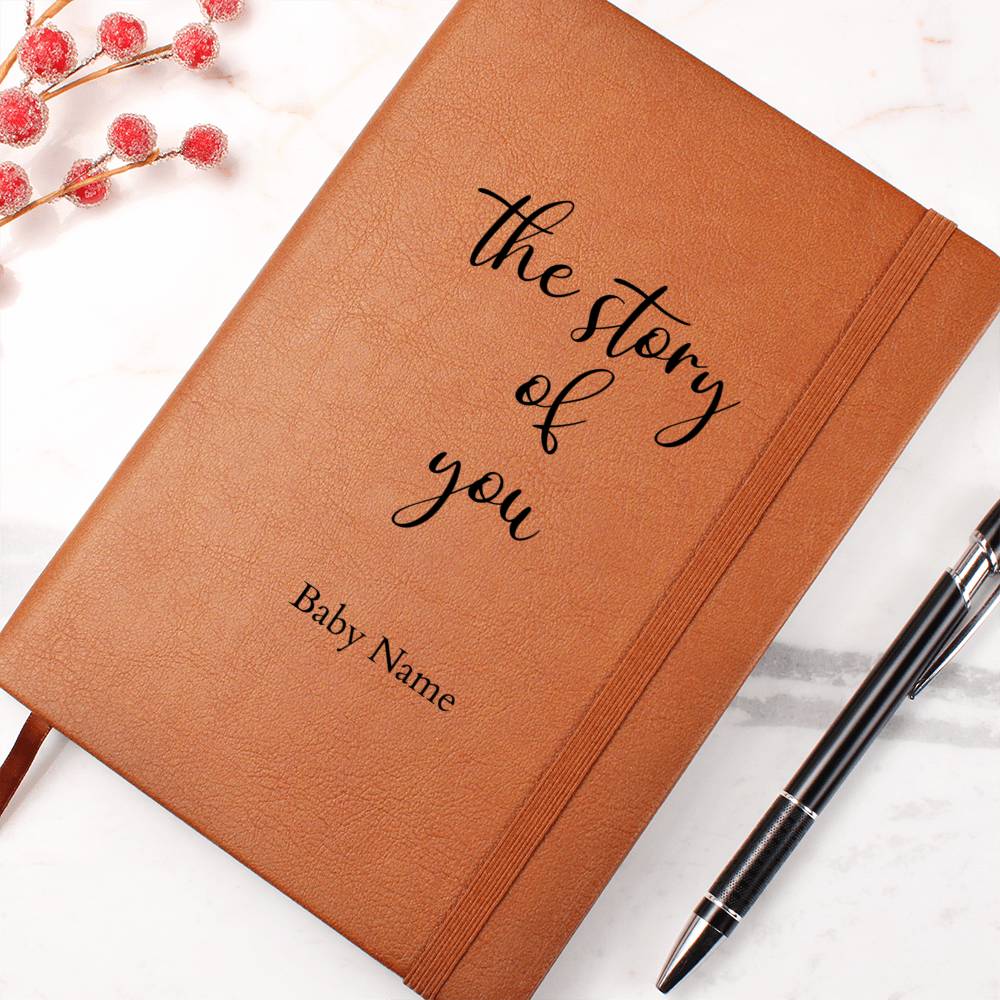 the story
of
you
Baby Name